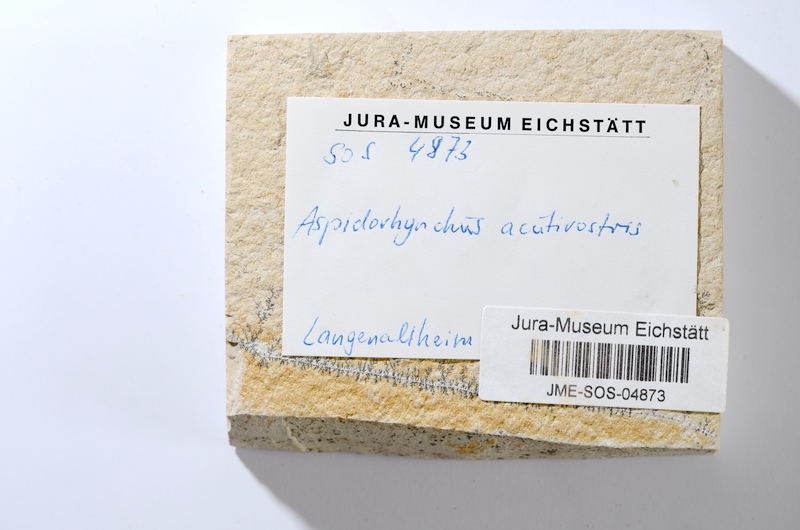 JURA-MUSEUM EICHSTÄTT
SOS 4873
Aspidorhynchus acutirostris
Langenaltheim
Jura-Museum Eichstätt
JME-SOS-04873